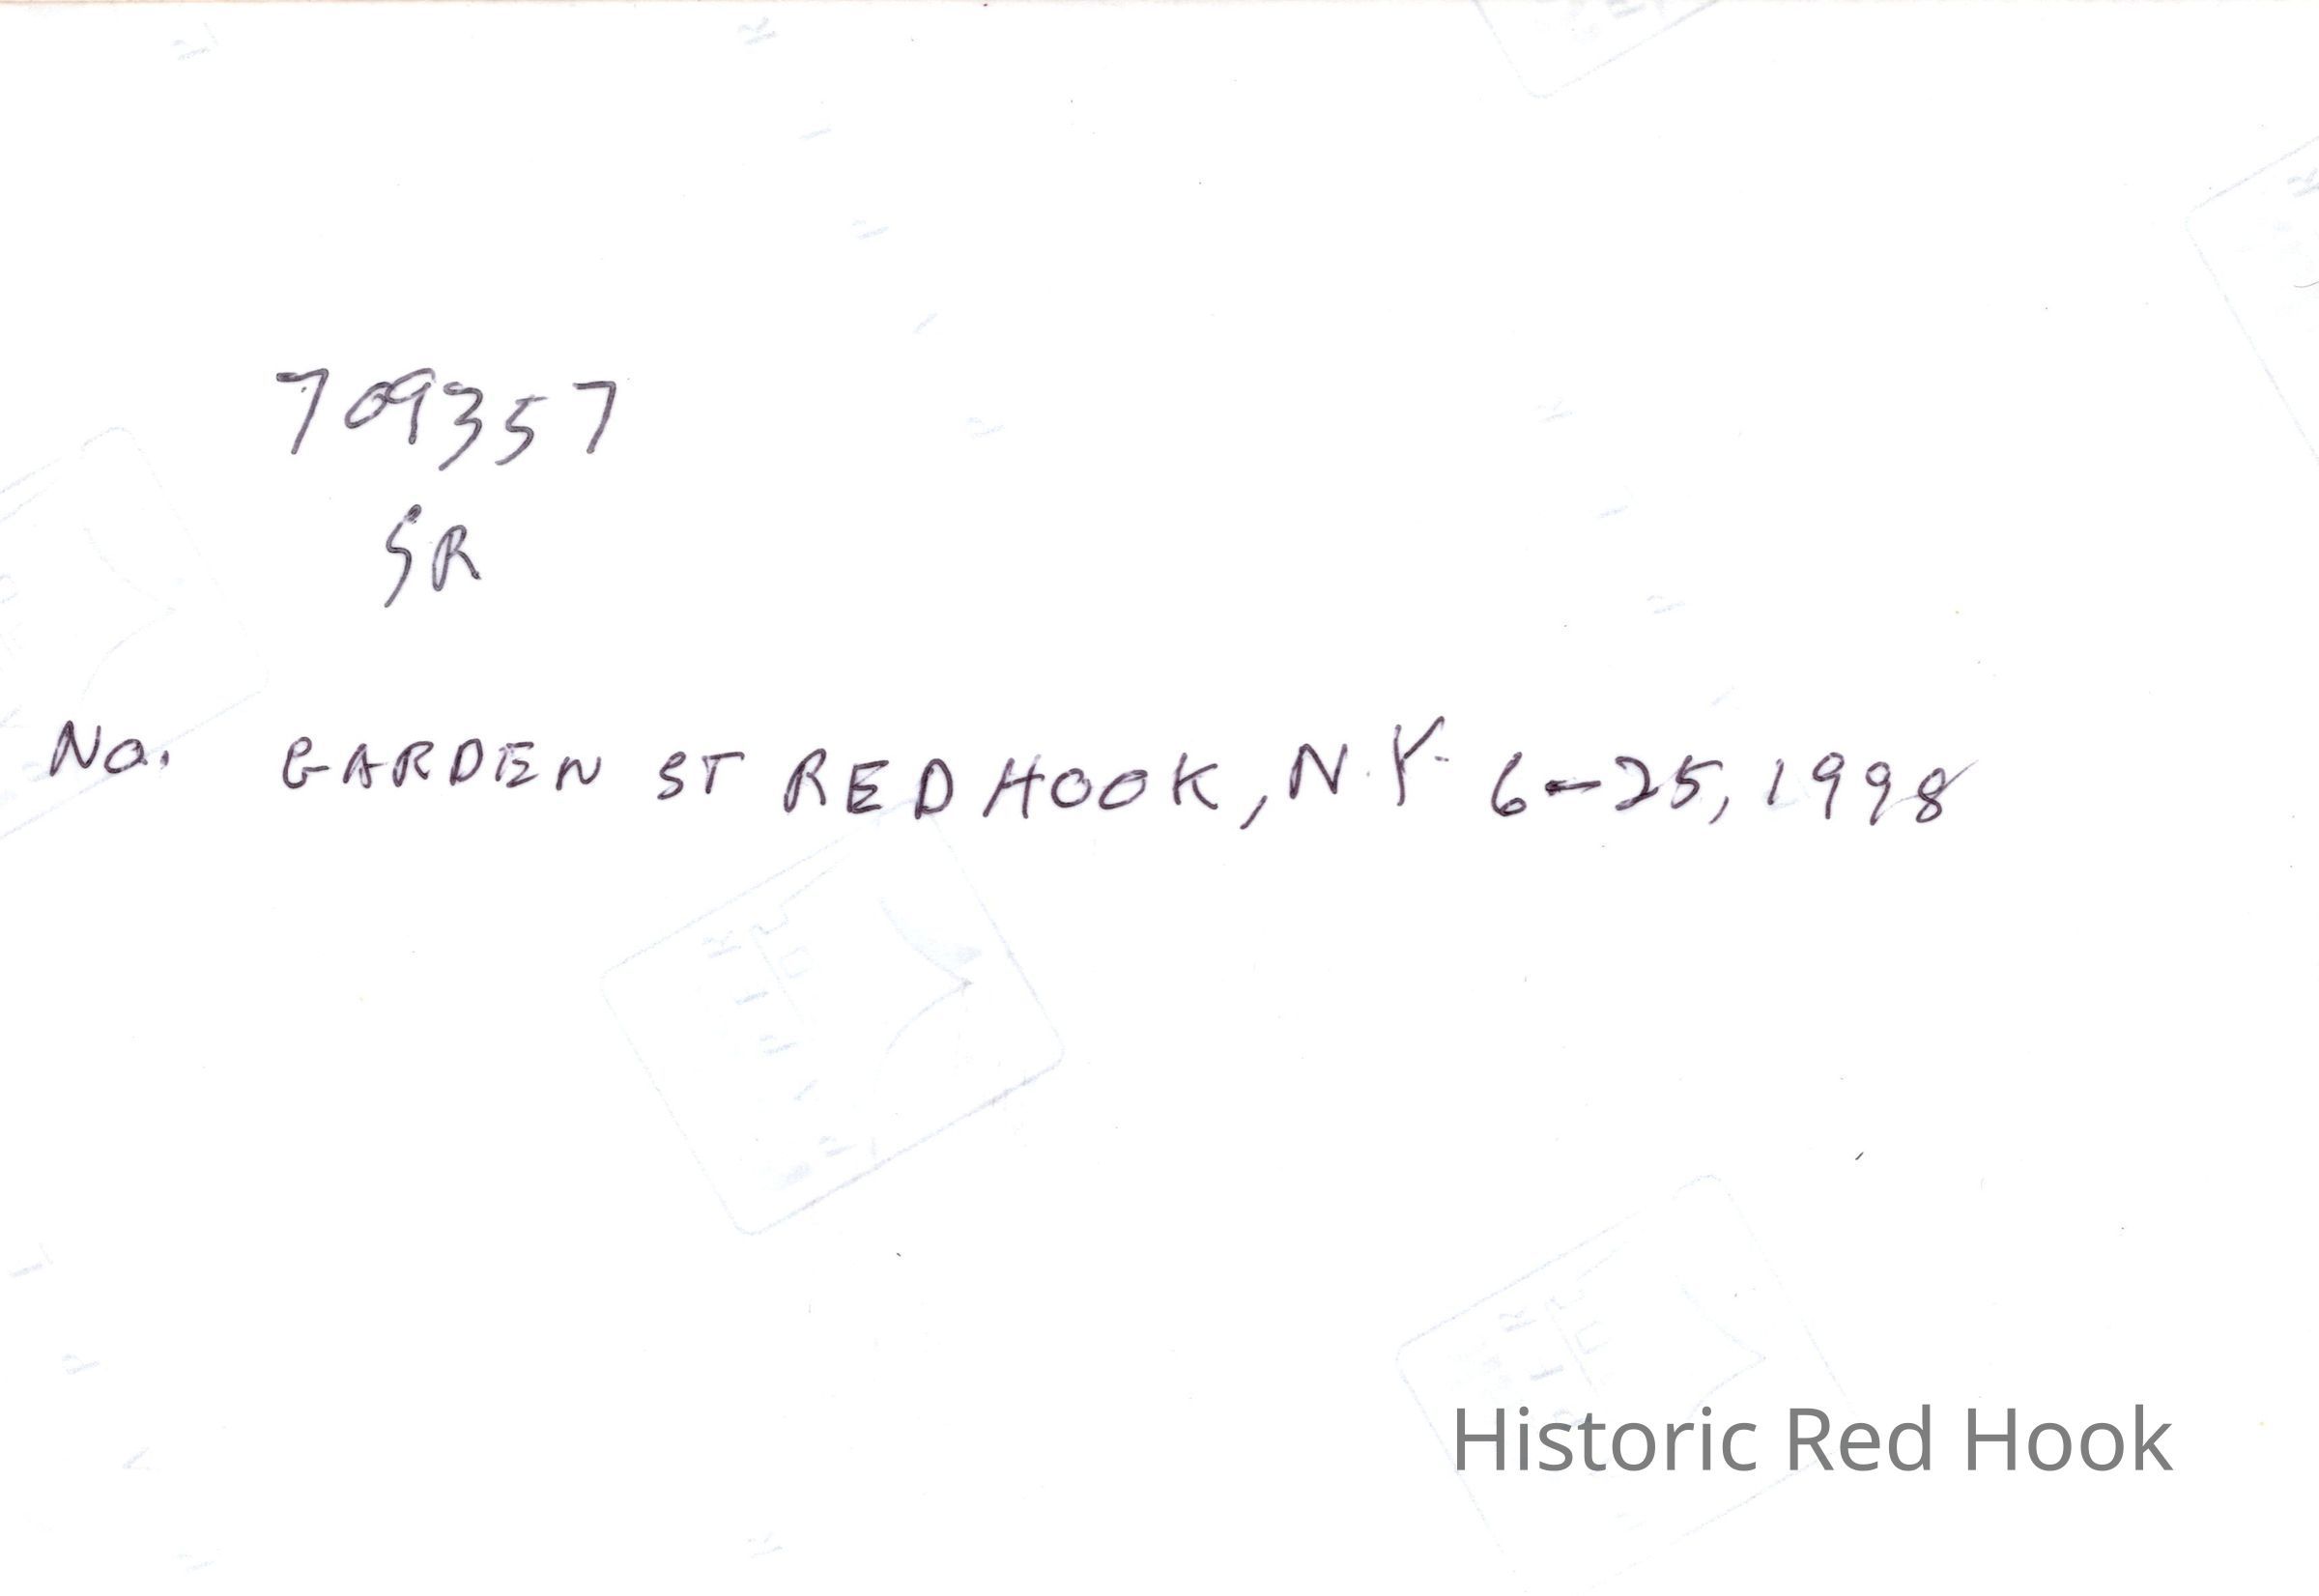 709357
SR
No. GARDEN ST RED HOOK, N.Y. 6-25, 1998
Historic Red Hook